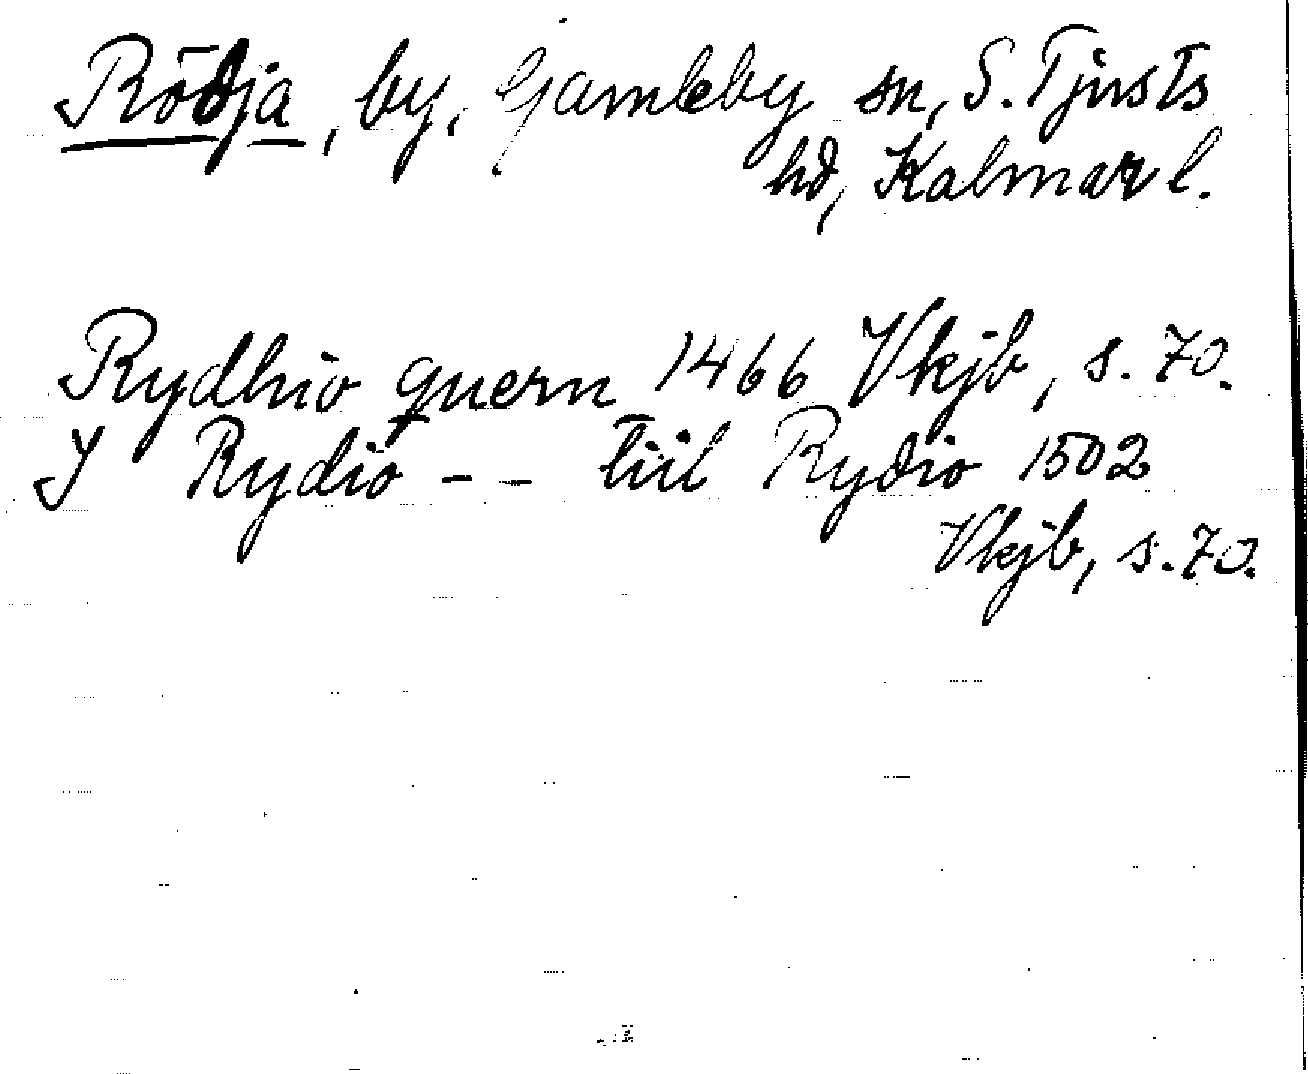 Rödja, by, Gamleby sn, S. Tjusts
hd, Kalmar l.
Rydhio quern 1466 Vkjb, s. 70.
J Rydio -- tiil Rydio 1502
Vkjb, s. 70.